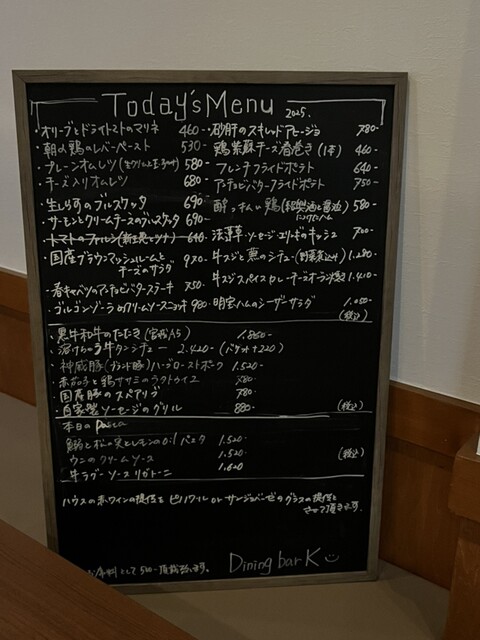 Today's Menu 2025.
・オリーブとドライトマトのマリネ 460-
・朝の鶏のレバーペースト 530-
・プレーンオムレツ 580
・チーズ入りオムレツ 680
・生しらすのブルスケッタ 690
・サーモンとクリームチーズのブルスケッタ 690
・トマトのファルシ 640
・国産ブラウンマッシュルームと
チーズのサラダ 970-
・春キャベツのアンチョビバターステーキ 750
・ゴルゴンゾーラのクリームソースニョッキ 980
・砂肝のスキレットアヒージョ 780-
鶏紫蘇チーズ春巻き(1本) 460-
フレンチフライドポテト 640-
アンチョビバターフライドポテト 750
酔っ払い鶏 580
法蓮草・ソーセージ・エリンギのキッシュ 700
牛スジと のシチュー 1.280-
牛スジスパイスカレーチーズオーブン焼 1.410-
明宝ハムのシーザーサラダ 1.050-
(税込)
・黒毛和牛のたたき(宮崎A5) 1.860-
・溶けちゃう牛タンシチュー 2.420- (バゲット+220)
・神威豚(ブランド豚)ハーブローストポーク 1.520-
・赤茄子と鶏ササミのラタトゥイユ 780-
・国産豚のスペアリブ 780-
・自家製ソーセージのグリル 880- (税込)
本日のpasta
・ と松の実とレモンのoilパスタ 1.520-
・ウニのクリームソース 1.520- (税込)
・牛ラグーソースリガトーニ 1.620
ハウスの赤ワインの提供を ピノノワール or サンジョベーゼのグラスの提供と
させて頂きます。
お席料として500-頂戴致します。
Dining bar K